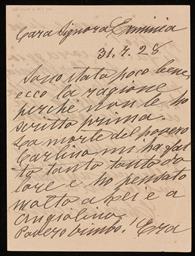 Cara Signora Erminia
31.7.28
Sono stato poco bene,
ecco la ragione
perchè non le ho
scritto prima.
La morte del povero
Carlino mi ha fat
to tanto tanto do
lore e ho pensato
molto a lei e a
Angiolino
Povero bimbo! Era